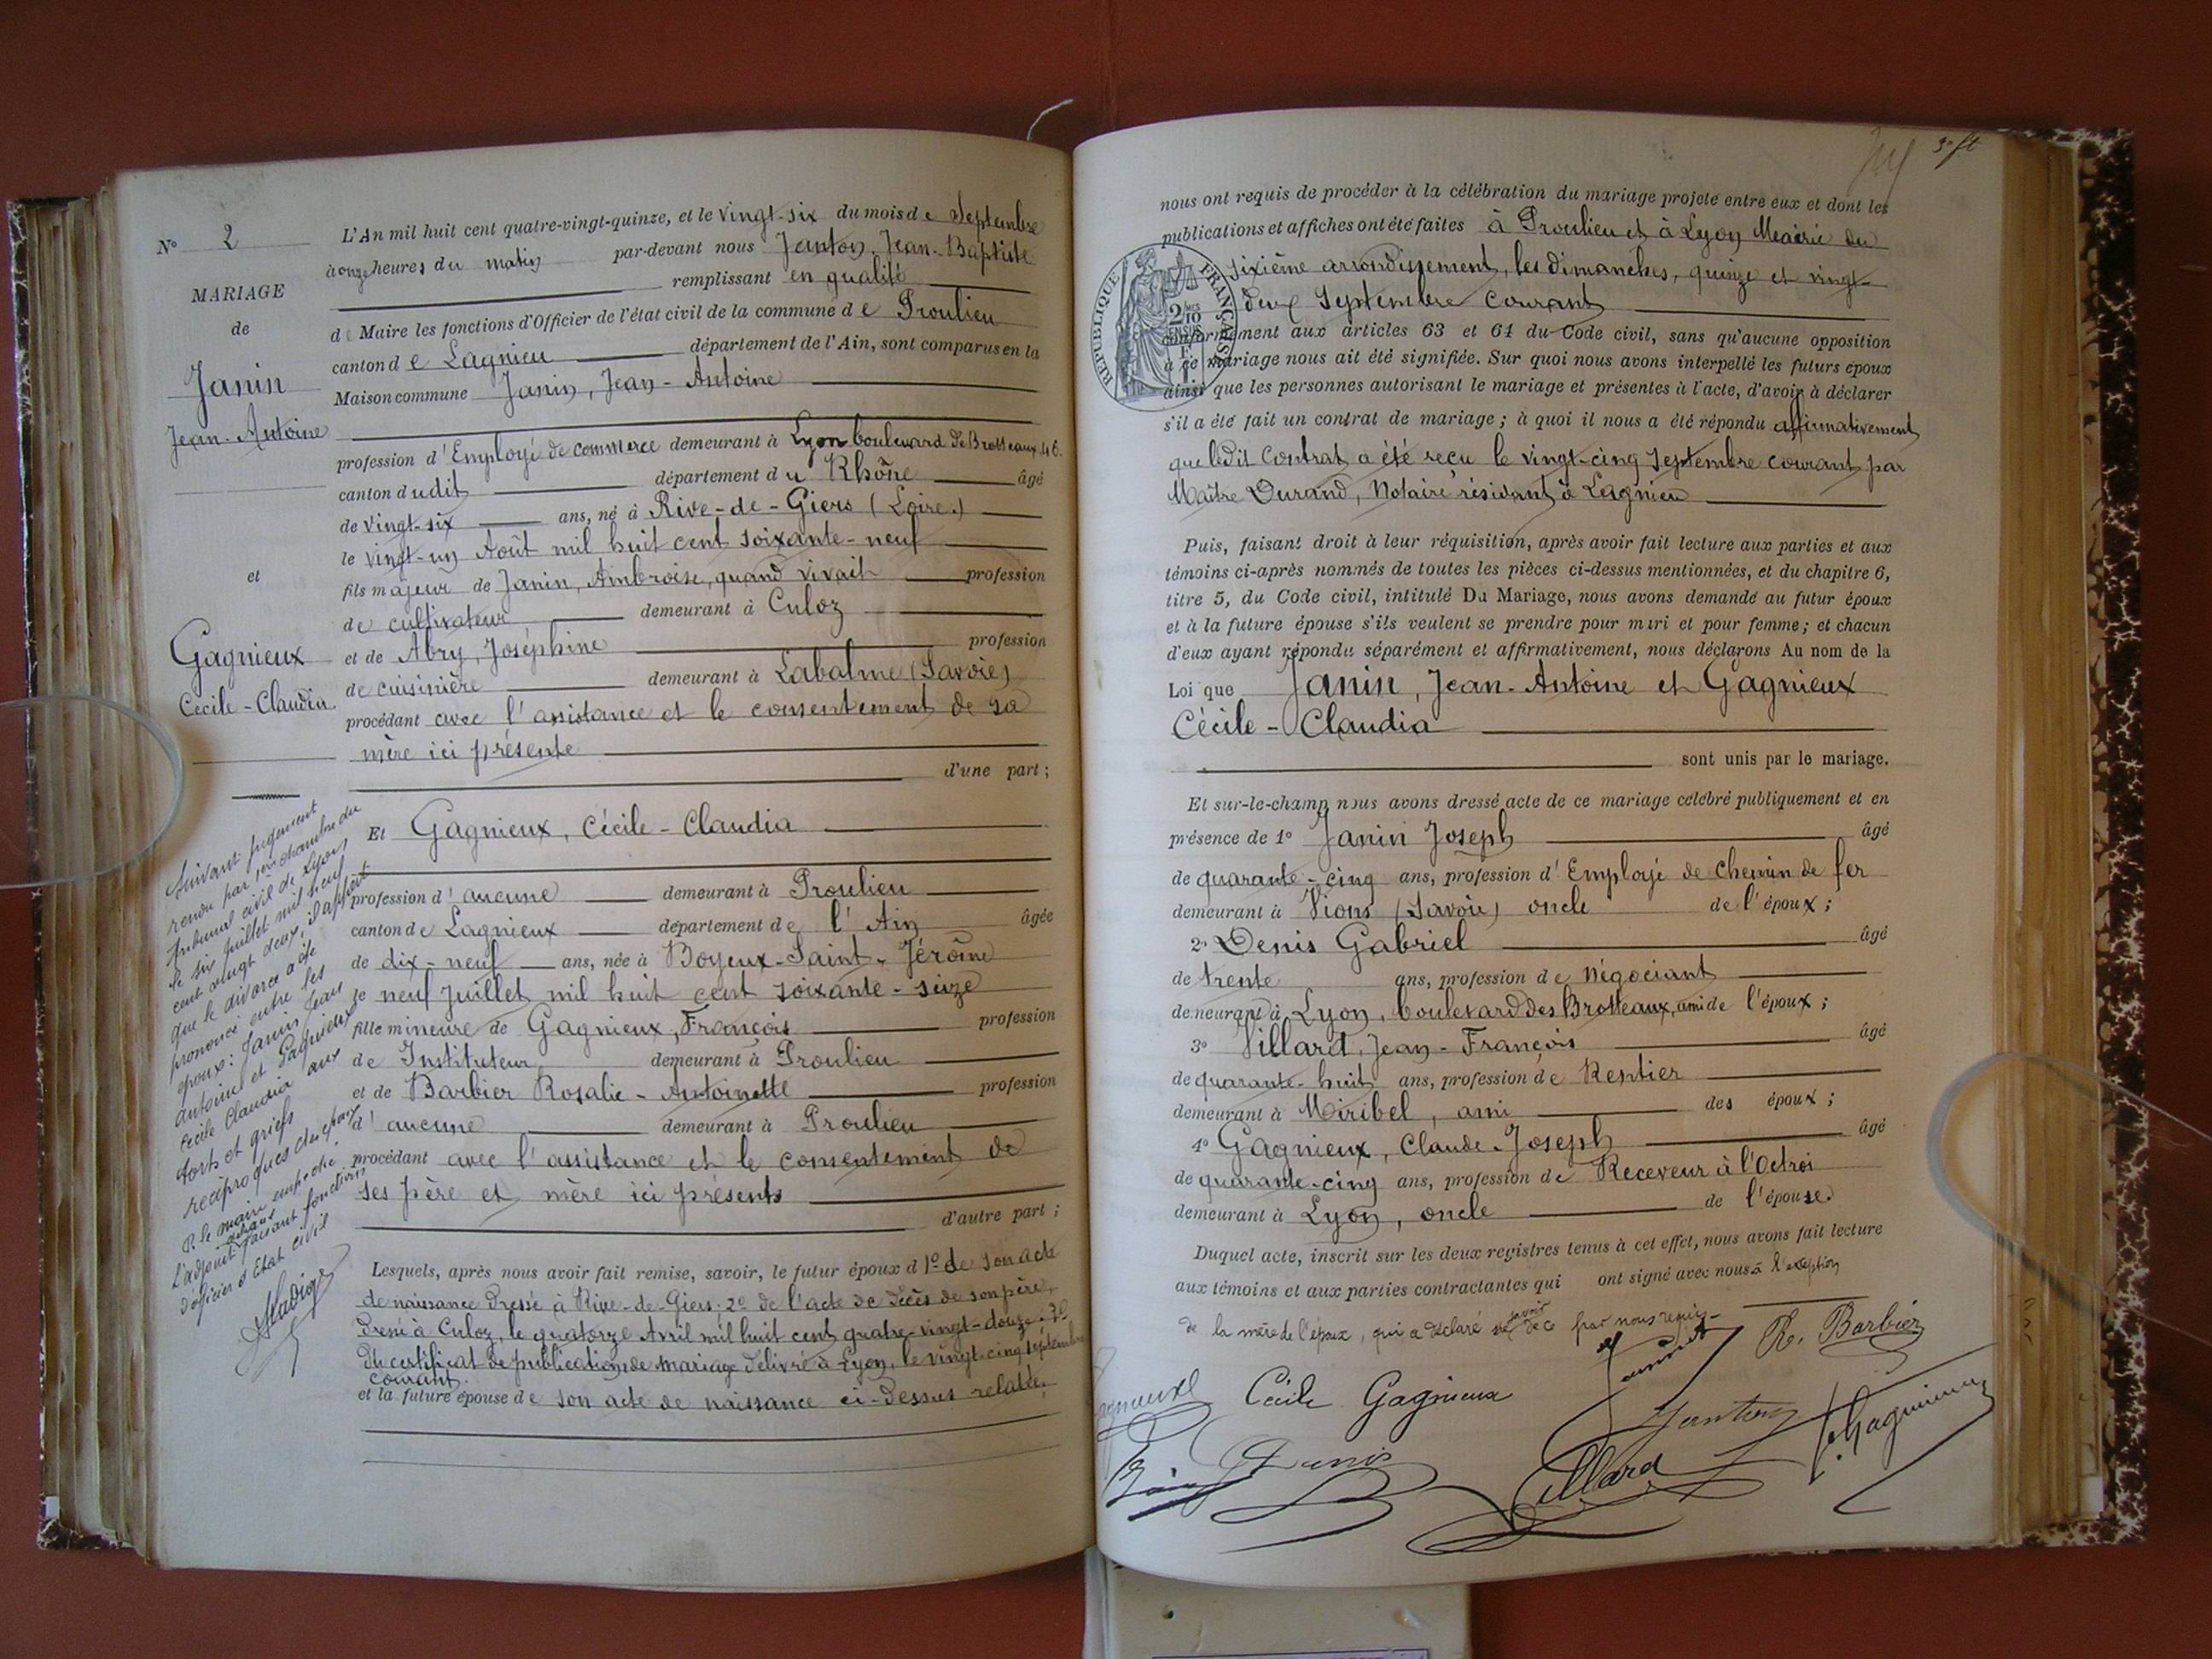 N° 2
MARIAGE
de
Janin
Jean-Antoine
et
Gagnieux
Cécile-Claudia
Suivant jugement
rendu par chambre du
tribunal civil de Lyon
le six juillet mil neuf
cent vingt deux, il appert
que le divorce a été
prononcé entre les
époux : Janin Jean
Antoine et Gagnieux
Cécile Claudia aux
torts et griefs
réciproques des époux
P. le maire empêché
L'adjoint faisant fonctions
d'officier d'Etat civil
L'An mil huit cent quatre-vingt-quinze, et le vingt-six du mois de Septembre
à onze heures du matin par-devant nous Janton, Jean-Baptiste
remplissant en qualité
de Maire les fonctions d'Officier de l'état civil de la commune de Proulieu
canton de Lagnieu département de l'Ain, sont comparus en la
Maison commune Janin, Jean-Antoine
profession d'Employé de commerce demeurant à Lyon boulevard des Brotteaux 46.
canton dudit département du Rhône âgé
de vingt-six ans, né à Rive-de-Giers (Loire.)
le vingt-un Août mil huit cent soixante-neuf
fils majeur de Janin, Ambroise, quand vivait profession
de cultivateur demeurant à Culoz
et de Abry, Joséphine profession
de cuisinière demeurant à Labalme (Savoie)
procédant avec l'assistance et le consentement de sa
mère ici présente
d'une part ;
Et Gagnieux, Cécile-Claudia
profession d'aucune demeurant à Proulieu
canton de Lagnieux département de l'Ain âgée
de dix-neuf ans, née à Boyeux-Saint-Jérôme
le neuf Juillet mil huit cent soixante-seize
fille mineure de Gagnieux, François profession
de Instituteur demeurant à Proulieu
et de Barbier Rosalie-Antoinette profession
d'aucune demeurant à Proulieu
procédant avec l'assistance et le consentement de
ses père et mère ici présents
d'autre part ;
Lesquels, après nous avoir fait remise, savoir, le futur époux d 1° de son acte
de naissance dressé à Rive-de-Giers; 2° de l'acte de décès de son père,
dressé à Culoz, le quatorze Avril mil huit cent quatre-vingt-douze. 3°
du certificat de publication de mariage délivré à Lyon, le vingt-cinq septembre
courant.
et la future épouse de son acte de naissance ci-dessus relaté.
nous ont requis de procéder à la célébration du mariage projeté entre eux et dont les
publications et affiches ont été faites à Proulieu et à Lyon Mairie du
sixième arrondissement, les dimanches, quinze et vingt-
deux Septembre courant
RÉPUBLIQUE FRANÇAISE
conformément aux articles 63 et 64 du Code civil, sans qu'aucune opposition
à ce mariage nous ait été signifiée. Sur quoi nous avons interpellé les futurs époux
ainsi que les personnes autorisant le mariage et présentes à l'acte, d'avoir à déclarer
s'il a été fait un contrat de mariage ; à quoi il nous a été répondu affirmativement
que ledit contrat a été reçu le vingt-cinq Septembre courant par
Maître Durand, Notaire résidant à Lagnieu
Puis, faisant droit à leur réquisition, après avoir fait lecture aux parties et aux
témoins ci-après nommés de toutes les pièces ci-dessus mentionnées, et du chapitre 6,
titre 5, du Code civil, intitulé Du Mariage, nous avons demandé au futur époux
et à la future épouse s'ils veulent se prendre pour mari et pour femme ; et chacun
d'eux ayant répondu séparément et affirmativement, nous déclarons Au nom de la
Loi que Janin, Jean-Antoine et Gagnieux
Cécile-Claudia
sont unis par le mariage.
Et sur-le-champ nous avons dressé acte de ce mariage célébré publiquement et en
présence de 1° Janin Joseph âgé
de quarante-cinq ans, profession d'Employé de chemin de fer
demeurant à Vions (Savoie) oncle de l'époux ;
2° Denis Gabriel âgé
de trente ans, profession de Négociant
demeurant à Lyon, boulevard des Brotteaux, ami de l'époux ;
3° Villard, Jean-François âgé
de quarante-huit ans, profession de Rentier
demeurant à Miribel, ami des époux ;
4° Gagnieux, Claude-Joseph âgé
de quarante-cinq ans, profession de Receveur à l'Octroi
demeurant à Lyon, oncle de l'épouse.
Duquel acte, inscrit sur les deux registres tenus à cet effet, nous avons fait lecture
aux témoins et aux parties contractantes qui ont signé avec nous à l'exception
de la mère de l'époux, qui a déclaré ne savoir de ce par nous requis.
R. Barbier
Gagnieux Cécile Gagnieux
Janton
Gagnieux
Denis
Villard